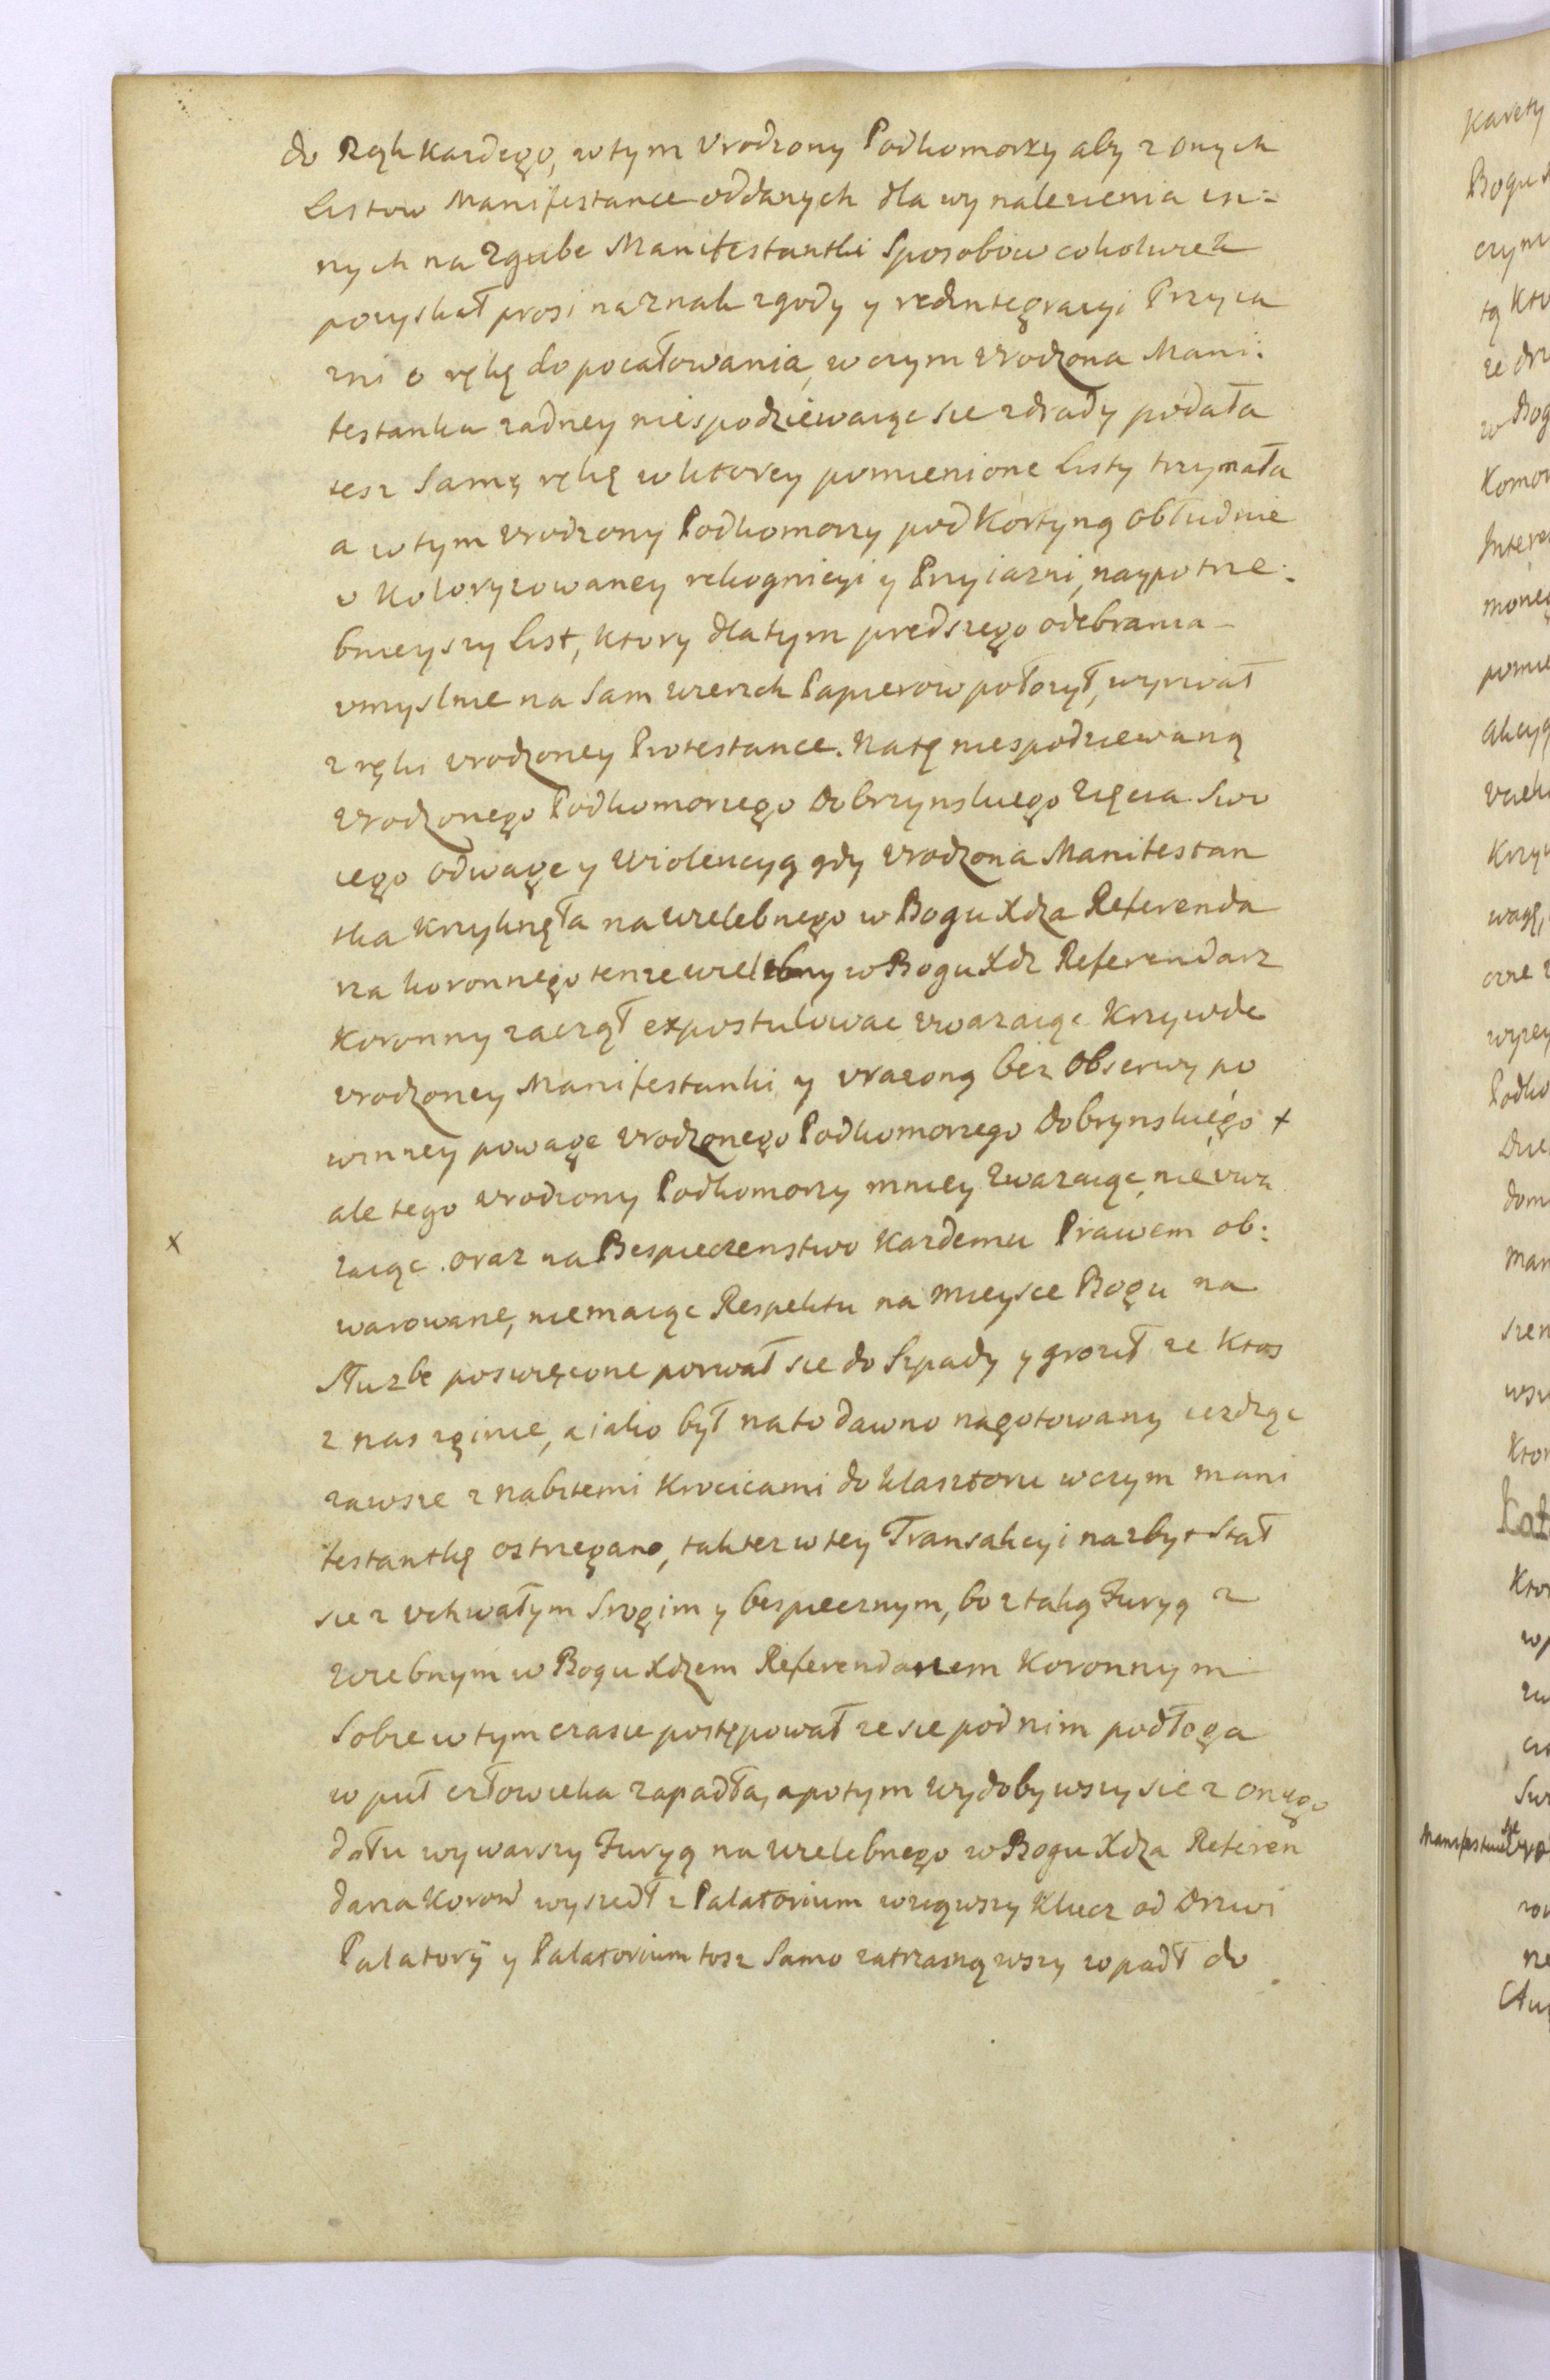 do Rąk kazdego, wtym Vrodzony Podkomorzy aby z onych
Listow Manifestance oddanych dla wynalezienia in=
nych na Zgube Manifestantki Sposobow cokolwiek
pozyskał prosi na znak zgody y redintegracyi Przyia
zni o rękę do pocałowania, w czym Vrodzona Mani:
festanka zadney niespodziewaiąc sie zdrady podała
tesz Samę rękę w ktorey pomienione Listy trzymała
a wtym Vrodzony Podkomorzy pod Kortyną obłudnie
v Koloryzowaney rekognicyi y Przyiazni, naypotrze:
bnieyszy List, ktory dla tym prędszego odebrania
vmyslnie na Sam wierzch Papierow połozył, wyrwał
z ręki Vrodzoney Protestance. Natę niespodziewaną
Vrodzonego Podkomorzego Dobrzynskiego Zięcia Swo
iego odwagę y Wiolencyą gdy Vrodzona Manifestan
tka krzyknęła na Wielebnego w Bogu Xdza Referenda
rza koronnego tenze wielebny w Bogu Xdz Referendarz
Koronny zaczął expostulowac vwazaiąc Krzywde
Vrodzoney Manifestanki y vrazoną bez Obserwy po
winney powagę Vrodzonego Podkomorzego Dobrynskiego +
ale tego Vrodzony Podkomorzy mniey Zwazaiąc nie vwa
x zaiąc oraz na Bespieczenstwo Kazdemu Prawem ob:
warowane, niemaiąc Respektu na mieysce Bogu na
Słuzbe poswięcone porwał sie do Szpady y groził ze ktos
z nas zginie, a iako był na to dawno nagotowany iezdząc
zawsze z nabitemi Krocicami do klasztoru w czym mani
festantkę ostrzegano, taktez w tey Transakcyi nazbyt Stał
sie z vchwałym Srogim y bespiecznym, bo z taką Furyą z
Wiebnym w Bogu Xdzem Referendarzem Koronnym
Sobie w tym czasie postępował ze sie pod nim podłoga
w puł człowieka zapadła, a potym wydobywszy sie z onego
dołu wywarszy Furyą na wielebnego w Bogu Xdza Referen
darza Koron wyszedł z Palatorium wziąwszy Klucz od Drzwi
Palatorÿ y Palatorium tosz Samo zatrzasnąwszy wpadł do